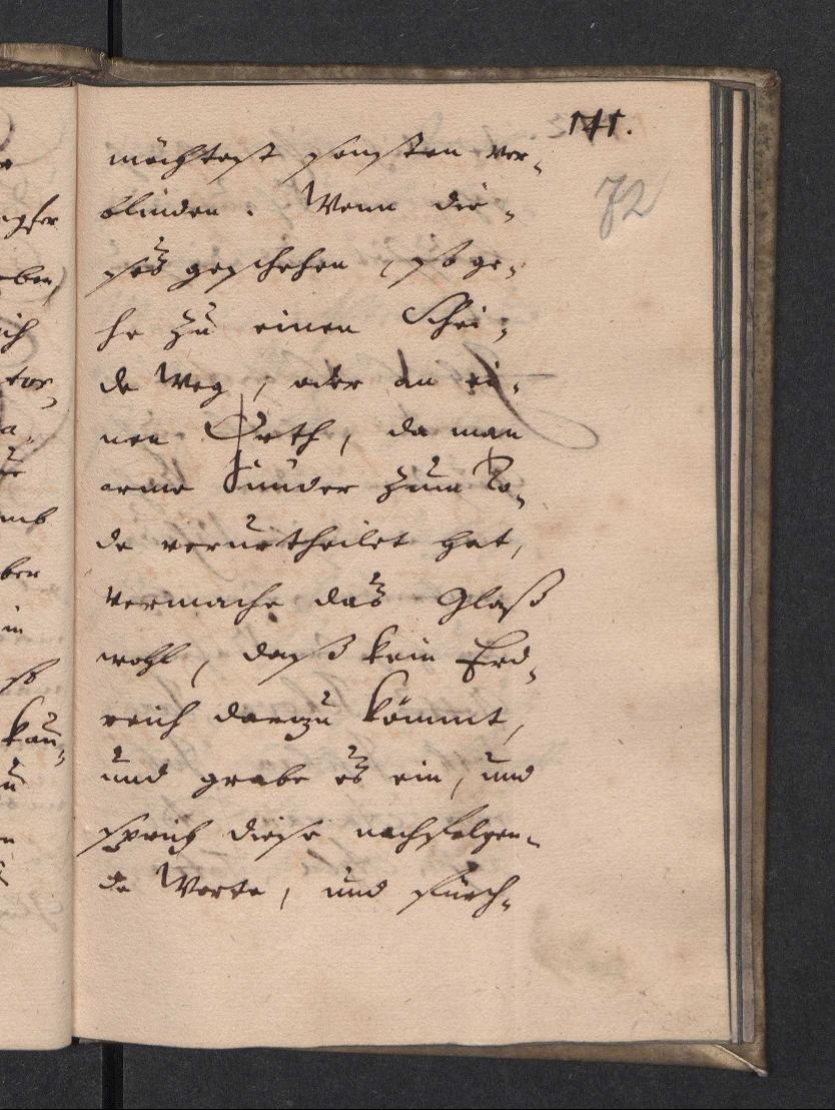 141.
72
möchtest sonsten ver-
blinden. Wenn die-
ses geschehen, so ge-
he zu einen Schei-
de Weg, oder an ei-
nen Orth, da man
arme Sünder zum To-
de verurtheilet hat,
vermache das Glaß
wohl, daß kein Erd-
reich darzu kömmt,
und grabe es ein, und
sprich diese nachfolgen-
de Worte, und fürch-